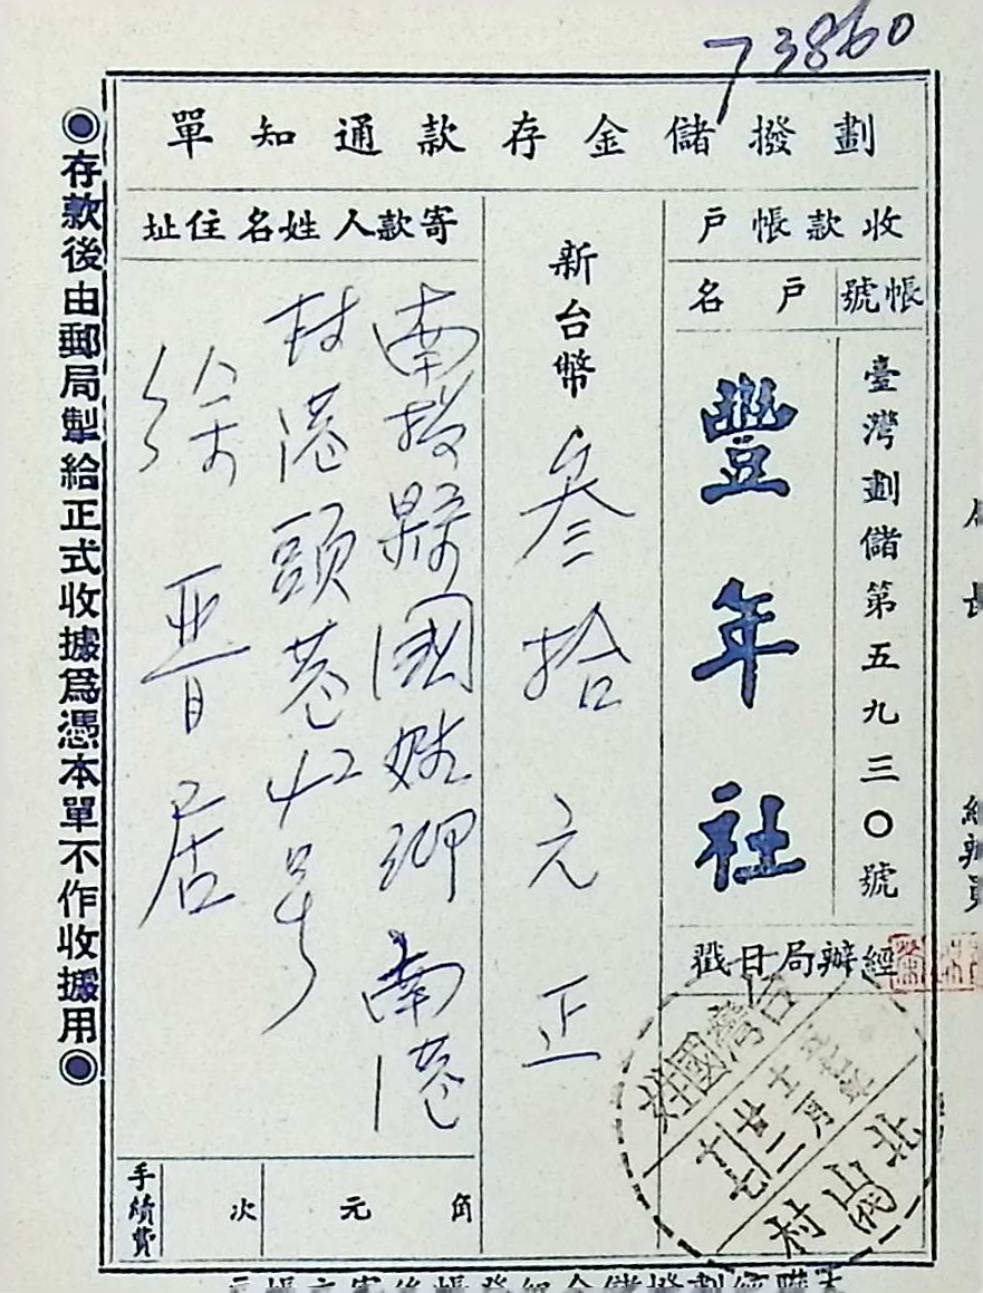 73860
劃撥儲金存款通知單
收款帳戶
帳號
戶名
臺灣劃儲第五九三〇號
豐年社
經辦局日戳
新台幣叁拾元正
寄款人姓名住址
南投縣國姓鄉南港
村港頭巷42号
徐晋居
手續費
次
元
角
台灣國姓
十二月廿二
十七
北山村
◉存款後由郵局掣給正式收據爲憑本單不作收據用◉